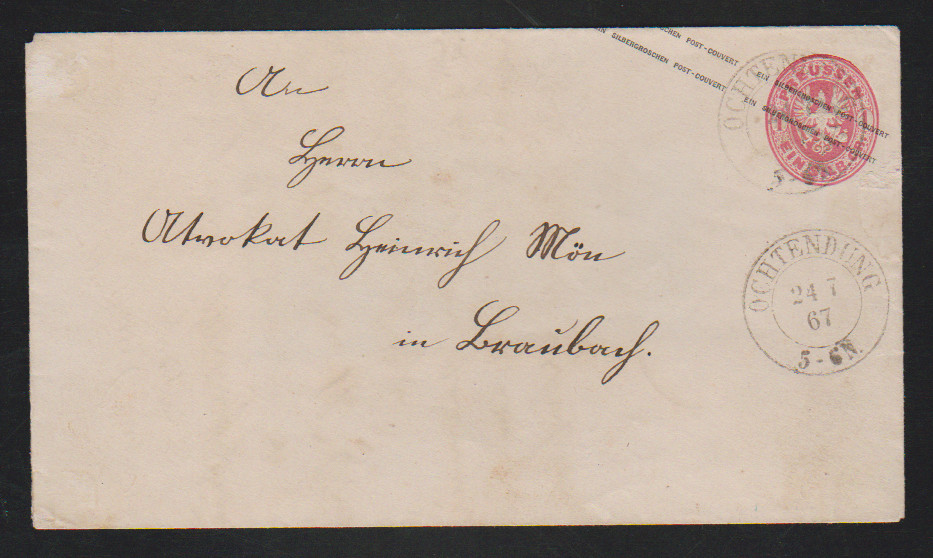 EIN SILBERGROSCHEN POST-COUVERT EIN SILBERGROSCHEN POST-COUVERT
EIN SILBERGROSCHEN POST-COUVERT EIN SILBERGROSCHEN POST-COUVERT
PREUSSEN
EIN SILB.GR.
OCHTENDUNG
5-
An
Herrn
Atvokat Heinrich Mön
in Braubach.
OCHTENDUNG
24 7
67
5-6N.